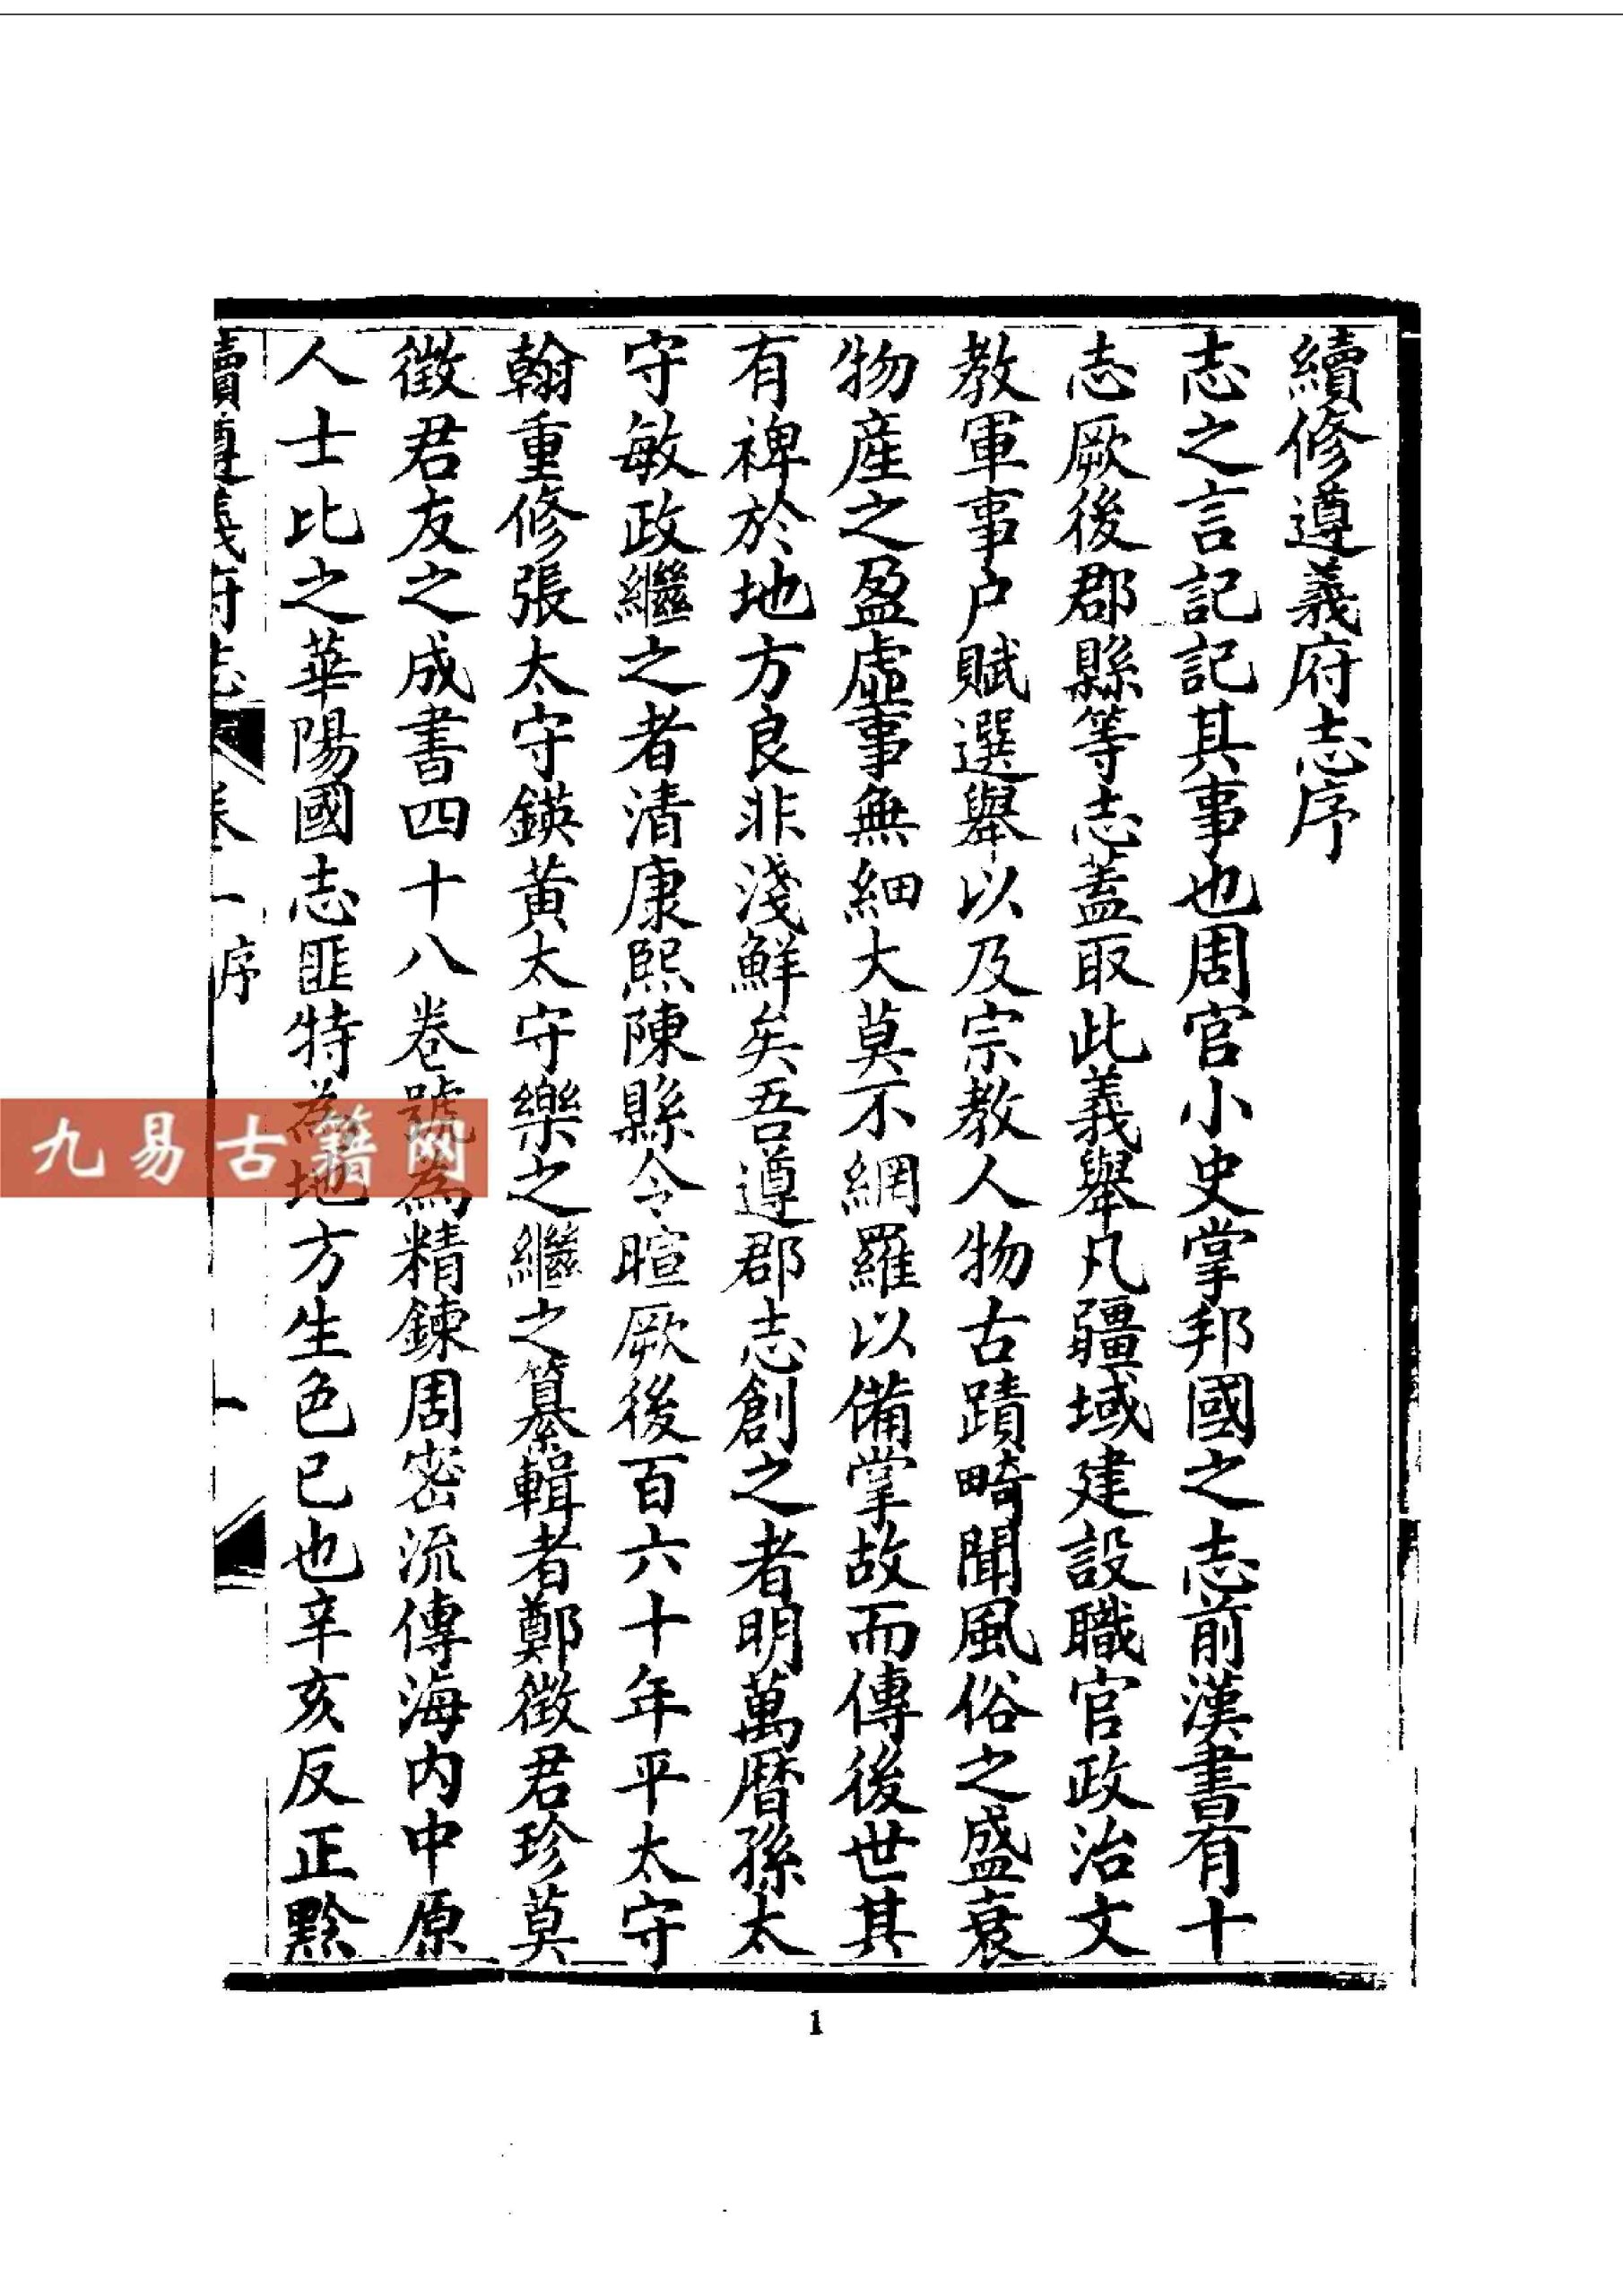 續修遵義府志序
志之言記記其事也周官小史掌邦國之志前漢書有十
志厥後郡縣等志蓋取此義舉凡疆域建設職官政治文
教軍事户賦選舉以及宗教人物古蹟畸聞風俗之盛衰
物產之盈虛事無細大莫不網羅以備掌故而傳後世其
有裨於地方良非淺鮮矣吾遵郡志創之者明萬曆孫太
守敏政繼之者清康熙陳縣令暄厥後百六十年平太守
翰重修張太守鍈黃太守樂之繼之纂輯者鄭徵君珍莫
徵君友之成書四十八卷號為精鍊周密流傳海內中原
人士比之華陽國志匪特為地方生色已也辛亥反正黔
續遵義府志 卷一 序 一
九易古籍网
1